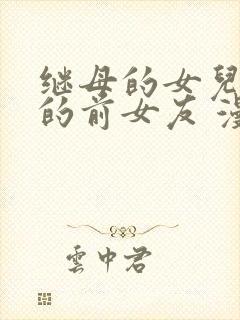 继母的女兒
的前女友 漫
雲中君